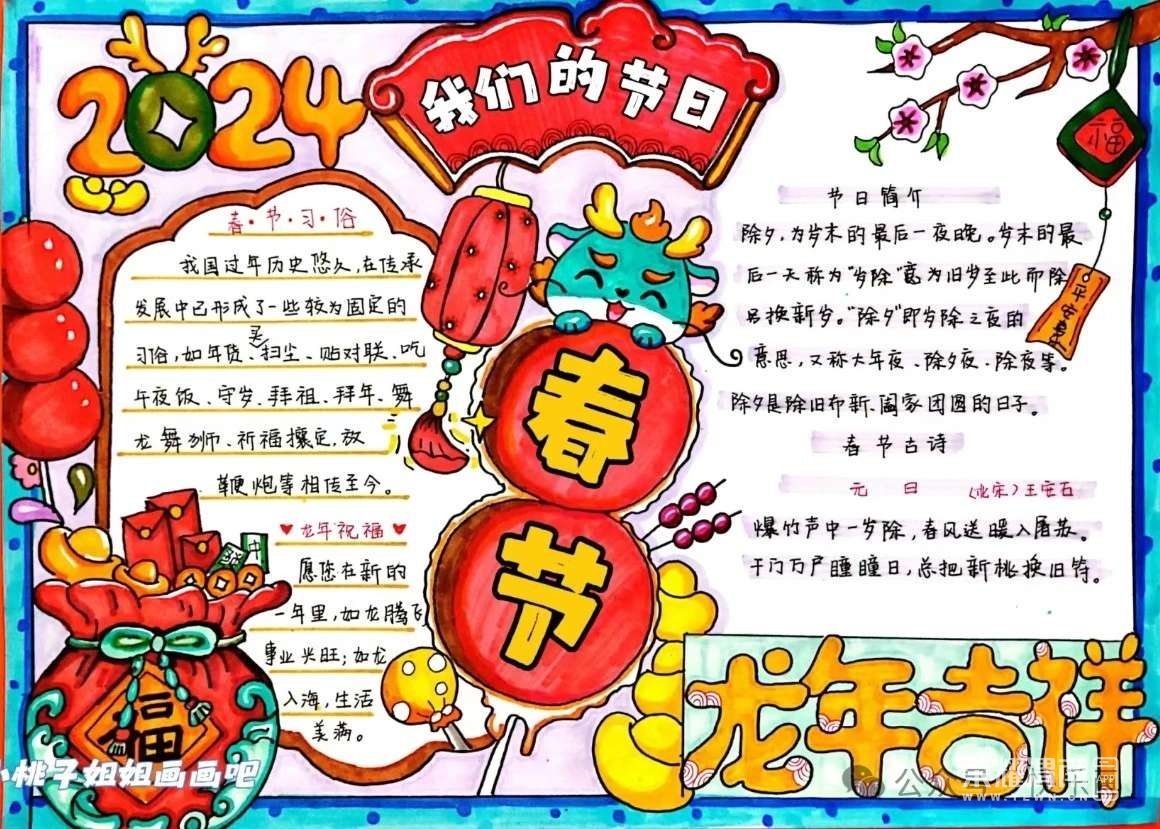 2024
我们的节日
春·节·习·俗
我国过年历史悠久,在传承
发展中已形成了一些较为固定的
买
习俗,如年货、扫尘、贴对联、吃
午夜饭、守岁、拜祖、拜年、舞
龙舞狮、祈福攘定,放
鞭炮等相传至今。
龙年祝福
愿您在新的
一年里,如龙腾飞
事业兴旺;如龙
入海,生活
美满。
福
春
节
福
平安
节日简介
除夕,为岁末的最后一夜晚。岁末的最
后一天称为"岁除"意为旧岁至此而除
另换新岁。"除夕"即岁除之夜的
意思,又称大年夜、除夕夜、除夜等。
除夕是除旧布新、阖家团圆的日子。
春节古诗
元日
(北宋)王安石
爆竹声中一岁除,春风送暖入屠苏。
千门万户瞳瞳日,总把新桃换旧符。
龙年吉祥
小桃子姐姐画画吧
公众号
WWW.YEWN.CN